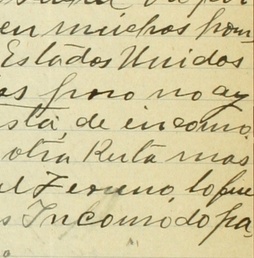 en muchos pom
Estados Unidos
as pero no ay
sta, de incomo
otra Ruta mas
el Terreno, lo que
s Incomodo pa-